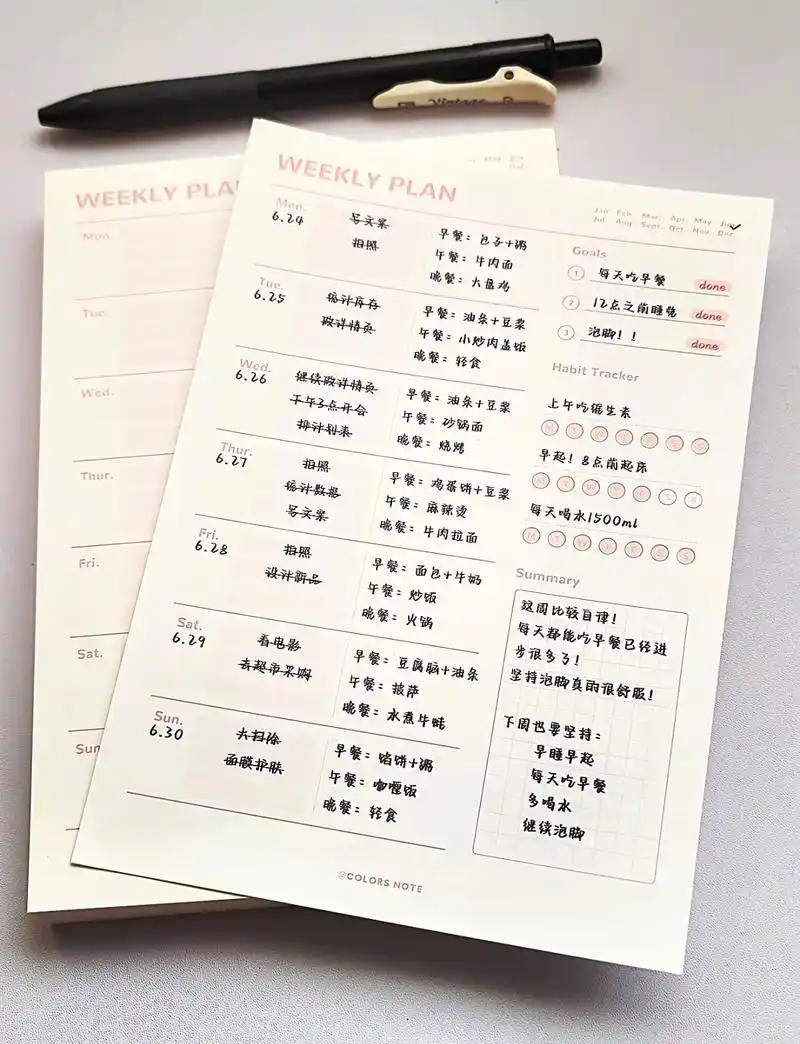 Vintage
WEEKLY PLA
Mon.
Tue.
Wed.
Thur.
Fri.
Sat.
Sun
WEEKLY PLAN
Jan. Feb. Mar. Apr. May. Jun
Jul. Aug. Sept. Oct. Nov. Dec.
Mon.
6.24
写文案
拍照
早餐：包子+粥
午餐：牛肉面
晚餐：大盘鸡
Tue.
6.25
统计库存
改详情页
早餐：油条+豆浆
午餐：小炒肉盖饭
晚餐：轻食
Wed.
6.26
继续改详情页
下午3点开会
排计划表
早餐：油条+豆浆
午餐：砂锅面
晚餐：烧烤
Thur.
6.27
拍照
统计数据
写文案
早餐：鸡蛋饼+豆浆
午餐：麻辣烫
晚餐：牛肉拉面
Fri.
6.28
拍照
设计新品
早餐：面包+牛奶
午餐：炒饭
晚餐：火锅
Sat.
6.29
看电影
去超市采购
早餐：豆腐脑+油条
午餐：披萨
晚餐：水煮牛蛙
Sun.
6.30
大扫除
面膜护肤
早餐：馅饼+粥
午餐：咖喱饭
晚餐：轻食
Goals
1 每天吃早餐 done
2 12点之前睡觉 done
3 泡脚！！ done
Habit Tracker
上午吃维生素
M T W T F S S
早起！8点前起床
M T W T F S S
每天喝水1500ml
M T W T F S S
Summary
这周比较自律！
每天都能吃早餐已经进
步很多了！
坚持泡脚真的很舒服！
下周也要坚持：
早睡早起
每天吃早餐
多喝水
继续泡脚
@COLORS NOTE